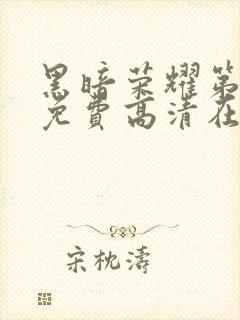 黑暗荣耀第
免费高清在
宋枕涛